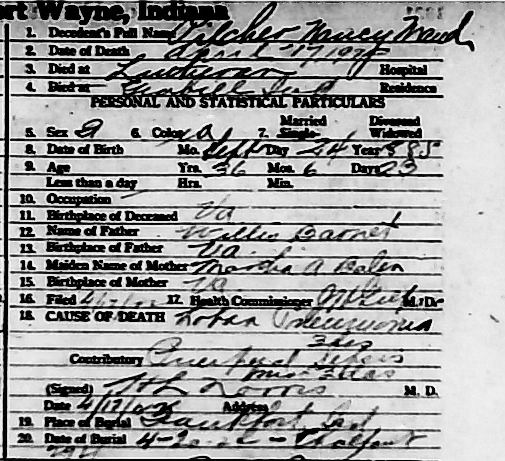 ort Wayne, Indiana
1. Decedent's Full Name Pilcher Nancy Maud
2. Date of Death April 17 192
3. Died at Lutheran Hospital
4. Died at Grabill Ind Residence
PERSONAL AND STATISTICAL PARTICULARS
Married Divorced
5. Sex 6. Color 7. Single Widowed
8. Date of Birth Mo. Sept Day 24 Year 1885
9. Age Yrs. 36 Mos. 6 Days 23
Less than a day Hrs. Min.
10. Occupation
11. Birthplace of Deceased Va
12. Name of Father Willis Barnet
13. Birthplace of Father Va.
14. Maiden Name of Mother Martha A
15. Birthplace of Mother Va
16. Filed 4/17/22 17. Health Commissioner M. D.
18. CAUSE OF DEATH Lobar Pneumonia
3 das
Contributory Puerperal
(Signed) M. D.
Date 4/17/22 Address
19. Place of Burial Frankfort Ind
20. Date of Burial 4-20-22